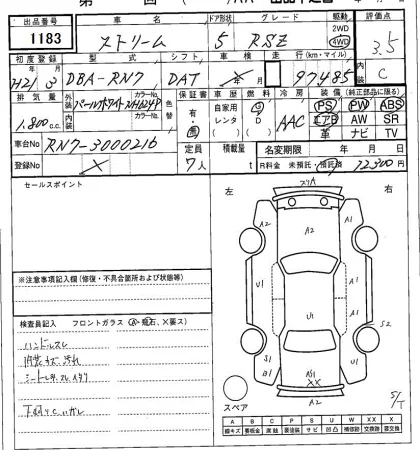 出品番号 車名 ドア形状 グレード 駆動 評価点
1183 ストリーム 5 RSZ 2WD 4WD 3.5
初度登録 型式 シフト 車検 走行(km・マイル) 内装
H21 3 DBA-RN7 DAT 年 月 97485 C
排気量 外装 カラーNo. 色替 保証書 車歴 燃費 冷房 装備(純正部品に限る)
1.800 c.c. パールホワイト NH624P 有・無 自家用 レンタ G D AAC PS PW ABS
内装 カラーNo. エアB AW SR
革 ナビ TV
車台No RN7-3000216 定員 積載量 名変期限 年 月 日
登録No 7人 t R料金 未預託・預託済 12300円
セールスポイント
左 右
スリA
A2
A2 A1
A2
U1 A1
U1
U1 A1
S2
S1 A1
B1 A1
A51
XX
A2
スペア
S/T
※注意事項記入欄(修復・不具合箇所および状態等)
検査員記入 フロントガラス (A・飛石、X要ス)
ハンドルスレ
内装キズ汚れ
A B C P S U W X XX X
線キズ 要板金 腐蝕 要塗装 サビ 凹凸 補修跡 交換跡 要交換